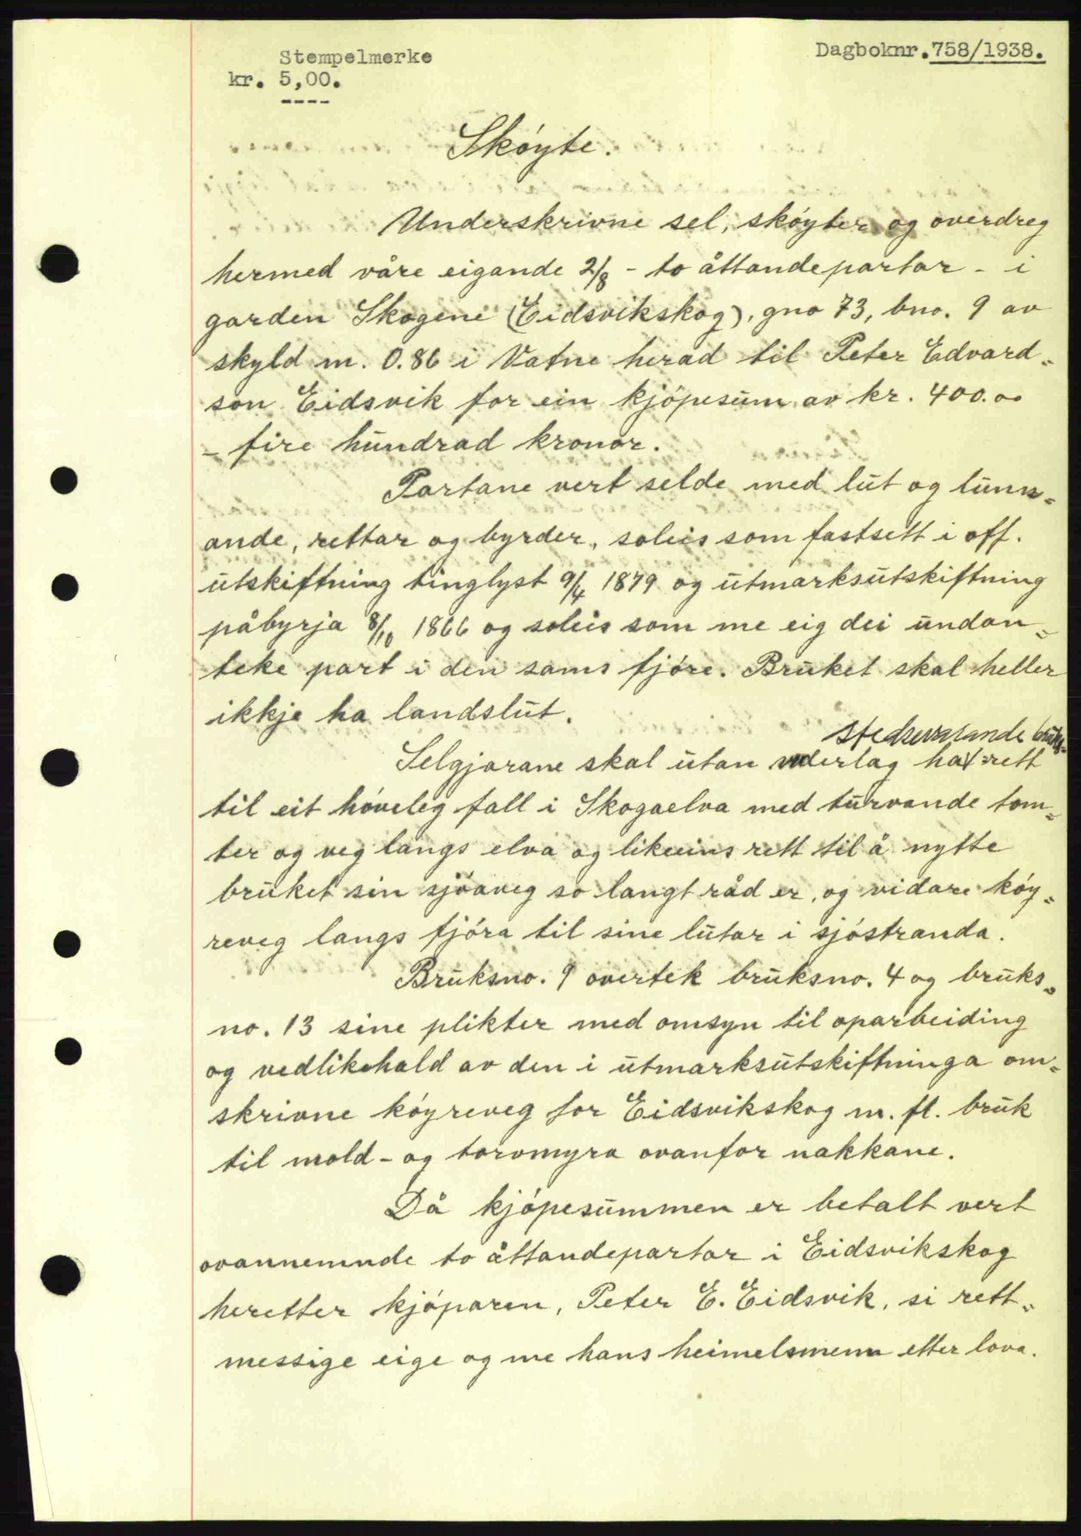 Stempelmerke
kr. 5,00.
----
Dagboknr. 758/1938.
Skøyte.
Underskrivne sel, skøyter og overdreg
hermed våre eigande 2/8 - to åttandepartar - i
garden Skogene (Eidsvikskog), gno 73, bno. 9 av
skyld m. 0.86 i Vatne herad til Peter Edvard-
son Eidsvik for ein kjøpesum av kr. 400.00
- fire hundrad kronor.
Partane vert selde med lut og lunn-
ande, rettar og byrder, soleis som fastsett i off.
utskiftning tinglyst 9/4 1879 og utmarksutskiftning
påbyrja 8/10 1866 og soleis som me eig dei undan-
teke part i den sams fjøre. Bruket skal heller
ikkje ha landslut.
stedsevarande bruks-
Selgjarane skal utan vederlag ha rett
til eit høveleg fall i Skogaelva med turvande tom-
ter og veg langs elva og likeeins rett til å nytte
bruket sin sjøaveg so langt råd er, og vidare køy-
reveg langs fjøra til sine lutar i sjøstranda.
Bruksno. 9 overtek bruksno. 4 og bruks-
no. 13 sine plikter med omsyn til oparbeiding
og vedlikehald av den i utmarksutskiftninga om-
skrivne køyreveg for Eidsvikskog m. fl. bruk
til mold- og torvmyra ovanfor nakkane.
Då kjøpesummen er betalt vert
ovannemnde to åttandepartar i Eidsvikskog
heretter kjøparen, Peter E. Eidsvik, si rett-
messige eige og me hans heimelsmenn etter lova.